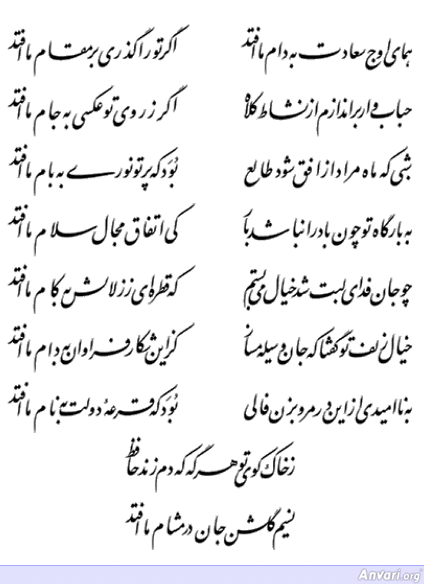 همای اوج سعادت به دام ما افتد اگر تو را گذری بر مقام ما افتد
حباب وار براندازم از نشاط کلاه اگر ز روی تو عکسی به جام ما افتد
شبی که ماه مراد از افق شود طالع بُوَد که پرتو نوری به بام ما افتد
به بارگاه تو چون باد را نباشد بار کی اتفاق مجال سلام ما افتد
چو جان فدای لبت شد خیال می‌بستم که قطره‌ای ز زلالش به کام ما افتد
خیال زلف تو گفتا که جان وسیله مساز کزین شکار فراوان به دام ما افتد
به ناامیدی از این در مرو بزن فالی بُوَد که قرعهٔ دولت به نام ما افتد
ز خاک کوی تو هر گه که دم زند حافظ
نسیم گلشن جان در مشام ما افتد
Anvari.org